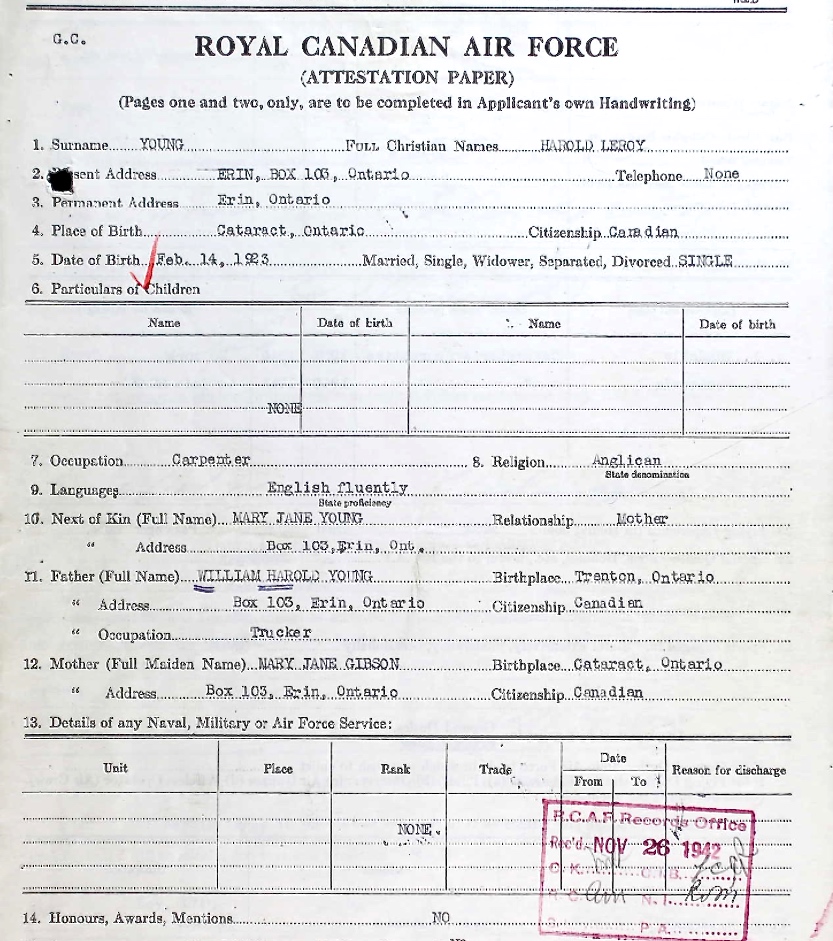 G.C.
ROYAL CANADIAN AIR FORCE
(ATTESTATION PAPER)
(Pages one and two, only, are to be completed in Applicant's own Handwriting)
1. Surname YOUNG Full Christian Names HAROLD LEROY
2. sent Address ERIN, BOX 103, Ontario Telephone None
3. Permanent Address Erin, Ontario
4. Place of Birth Cataract, Ontario Citizenship Canadian
5. Date of Birth Feb. 14, 1923 Married, Single, Widower, Separated, Divorced SINGLE
6. Particulars of Children
Name Date of birth Name Date of birth
NONE
7. Occupation Carpenter 8. Religion Anglican
State denomination
9. Languages English fluently
State proficiency
10. Next of Kin (Full Name) MARY JANE YOUNG Relationship Mother
" Address Box 103, Erin, Ont.
11. Father (Full Name) WILLIAM HAROLD YOUNG Birthplace Trenton, Ontario
" Address Box 103, Erin, Ontario Citizenship Canadian
" Occupation Trucker
12. Mother (Full Maiden Name) MARY JANE GIBSON Birthplace Cataract, Ontario
" Address Box 103, Erin, Ontario Citizenship Canadian
13. Details of any Naval, Military or Air Force Service:
Unit Place Rank Trade Date Reason for discharge
From To
NONE.
R.C.A.F. Records Office
Rec'd. NOV 26 1942
C.K. C.I.B.
R.C. N.I.
P.A.
14. Honours, Awards, Mentions NO